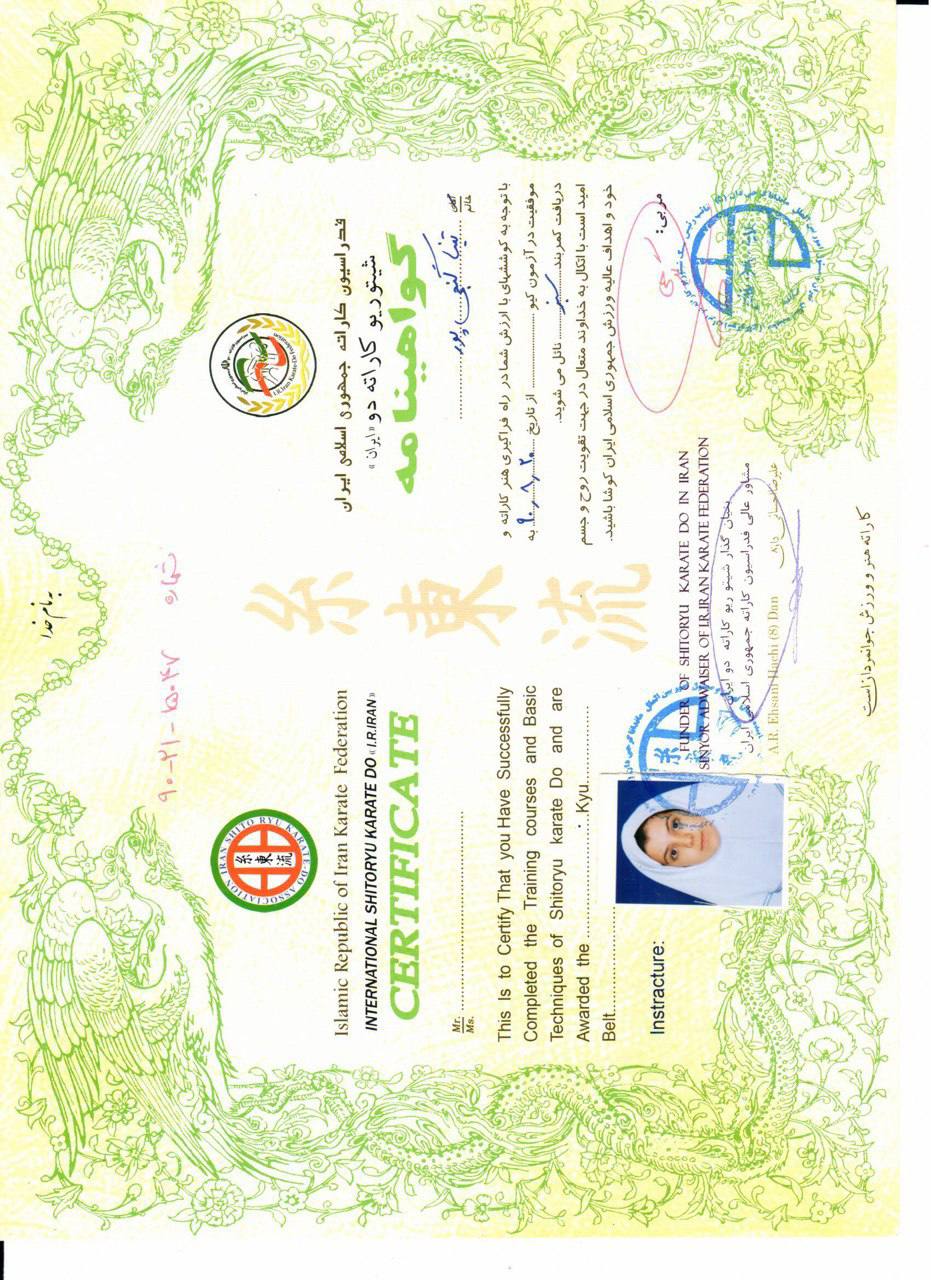 به نام خدا
شماره ۹۰-۲۱-۱۵۰۴۷
ASSOCIATION IRAN SHITO RYU KARATE-DO
糸
東
流
I.R.Iran Karate-Do Federation
Islamic Republic of Iran Karate Federation
INTERNATIONAL SHITORYU KARATE DO « I.R.IRAN »
CERTIFICATE
Mr.
Ms.
This Is to Certify That you Have Successfully
Completed the Training courses and Basic
Techniques of Shitoryu karate Do and are
Awarded the ...................... Kyu................
Belt......................
Instracture:
糸
東
流
فدراسیون کاراته جمهوری اسلامی ایران
شیتوریو کاراته دو «ایران»
گواهینامه
آقای
خانم
تینا گنجی پور
با توجه به کوششهای با ارزش شما در راه فراگیری هنر کاراته و
موفقیت در آزمون کیو .................. از تاریخ ۹۰,۸,۲۰ به
دریافت کمربند سبز نائل می شوید.
امید است با اتکال به خداوند متعال در جهت تقویت روح و جسم
خود و اهداف عالیه ورزش جمهوری اسلامی ایران کوشا باشید.
مربی:
FUNDER OF SHITORYU KARATE DO IN IRAN
SINYOR ADWAISER OF I.R.IRAN KARATE FEDERATION
بنیان گذار شیتو ریو کاراته دو ایران
مشاور عالی فدراسیون کاراته جمهوری اسلامی ایران
A.R. Ehsani Hachi (8) Dan
علیرضا احسانی دان ۸
کاراته هنر و ورزش جوانمردان است